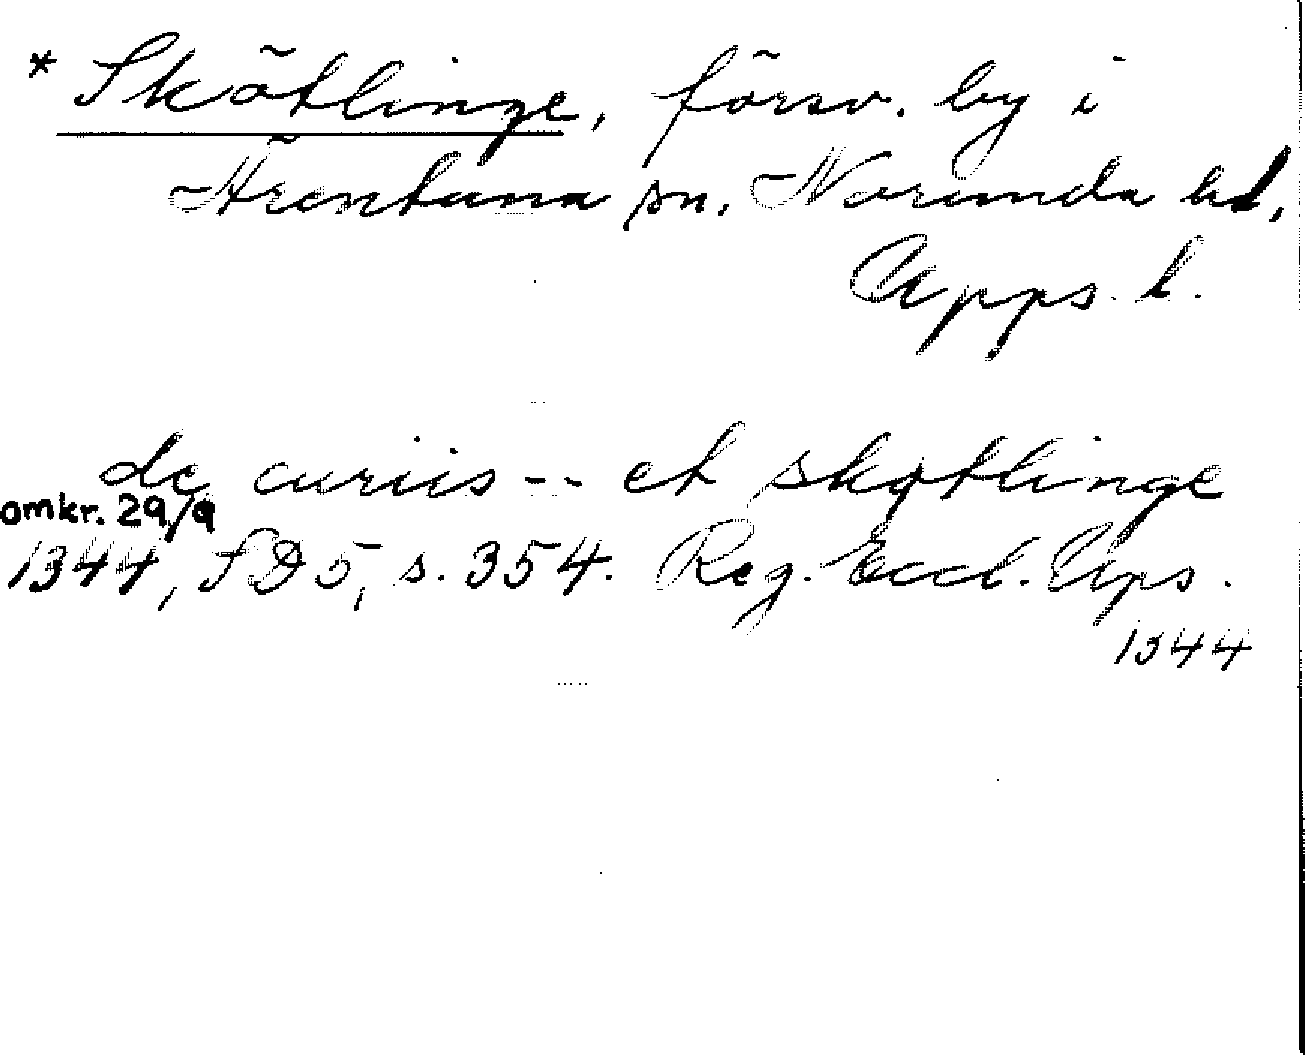 * Skötlinge, försv. by i
Ärentuna sn. Norunda hd,
Upps. l.
de curiis -- et skøtlinge
omkr. 29/9
1344, SD 5, s. 354. Reg. Eccl. Ups.
1344